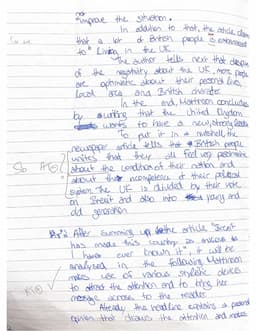 not
improve the situation.
In addition to that, the article claims
that a lot of British people is embarrassed
to living in the UK.
The author tells next that despite
of the negativity about the UK, more people
are optimistic about their personal lives,
local area and British character.
In the end, Harrison concludes
by writing that the United Kingdom
wants to have a new, strong leader
To put it in a nutshell, the
newspaper article tells that British people
unites that they all feel very pessimistic
about the condition of their nation and
about the incompetence of their political
system. The UK is divided by their vote
on Brexit and also into young and
old generation
After summing up the article "Brexit
has made this country
I have ever known it", it will be
analysed in the following
makes use of various stylistic devices
to attract the attention and to bring her
message across to the reader.
Already the headline contains a personal
opinion that draws the attention and makes